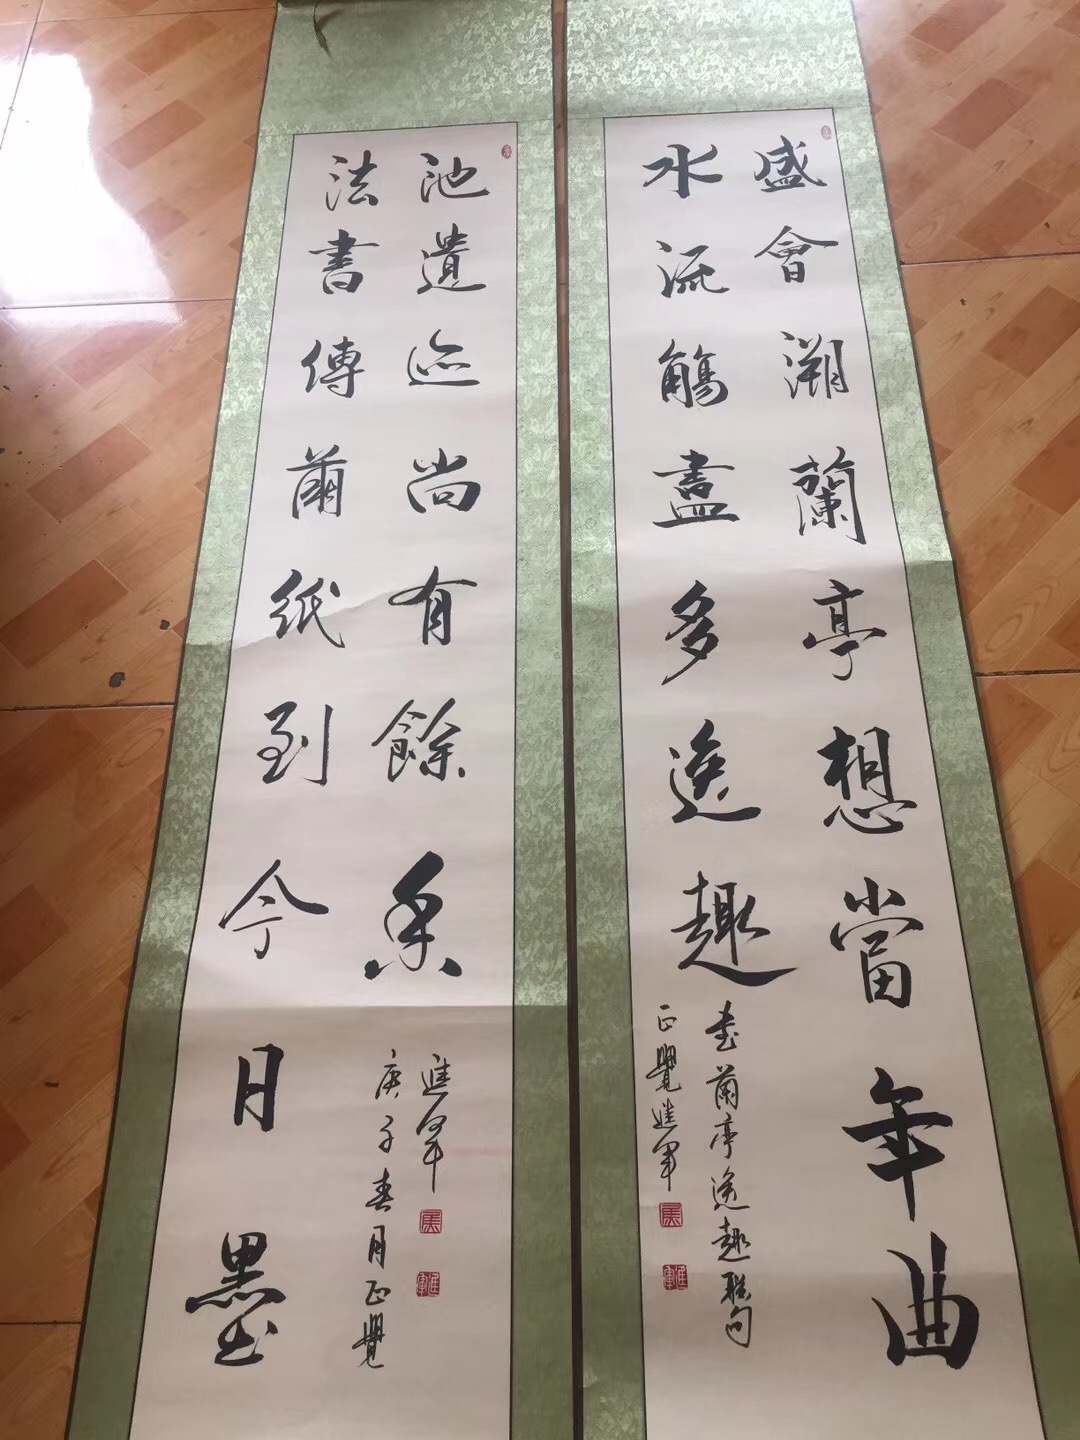 盛會溯蘭亭想當年曲
水流觴盡多逸趣
書蘭亭逸趣聯句
正覺進軍
法書傳繭紙到今日墨
池遺迹尚有餘香
庚子春月正覺
進軍